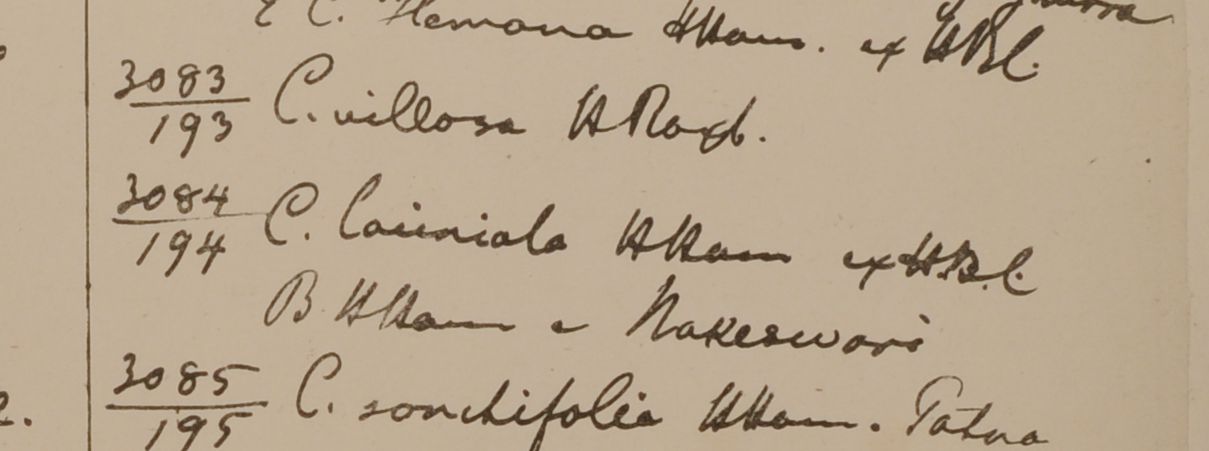 E C. Hemona HHam. ex HBC.
3083
193 C. villosa HRoxb.
3084
194 C. laciniala HHam ex H.B.C.
B HHam e Nakeswari
3085
195 C. sonchifolia HHam. Patna